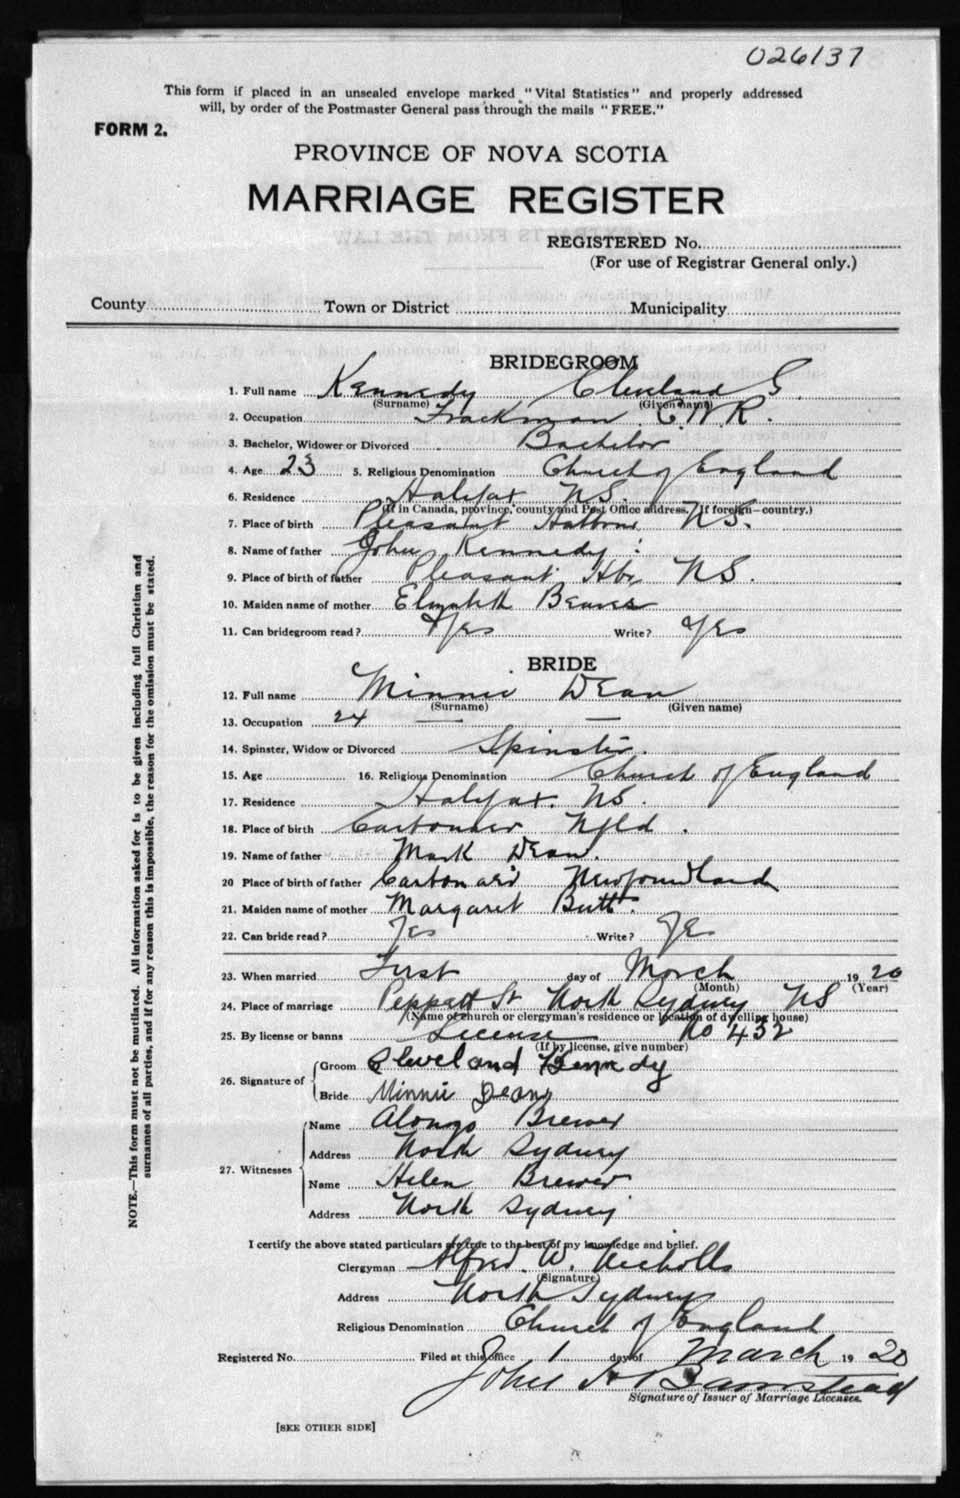 026137
This form if placed in an unsealed envelope marked "Vital Statistics" and properly addressed
will, by order of the Postmaster General pass through the mails "FREE."
FORM 2.
PROVINCE OF NOVA SCOTIA
MARRIAGE REGISTER
REGISTERED No.
(For use of Registrar General only.)
County Town or District Municipality
BRIDEGROOM
1. Full name Kennedy Cleveland G.
(Surname) (Given name)
2. Occupation Trackman C.N.R.
3. Bachelor, Widower or Divorced Bachelor
4. Age 23 5. Religious Denomination Church of England
6. Residence Halifax NS.
(If in Canada, province, county and Post Office address. If foreign—country.)
7. Place of birth Pleasant Harbour NS.
8. Name of father John Kennedy
9. Place of birth of father Pleasant Hbr NS.
10. Maiden name of mother Elizabeth Beaves
11. Can bridegroom read? Yes Write? Yes
BRIDE
12. Full name Minnie Dean
(Surname) (Given name)
13. Occupation 24 — —
14. Spinster, Widow or Divorced Spinster.
15. Age 16. Religious Denomination Church of England
17. Residence Halifax. NS.
18. Place of birth Carbonear Nfld.
19. Name of father Mark Dean.
20 Place of birth of father Carbonear Newfoundland
21. Maiden name of mother Margaret Butt.
22. Can bride read? Yes Write? Yes
23. When married First day of March 1920
(Month) (Year)
24. Place of marriage Peppett St North Sydney NS
(Name of church or clergyman's residence or location of dwelling house)
25. By license or banns License No 432
(If by license, give number)
26. Signature of Groom Cleveland Kennedy
Bride Minnie Dean
27. Witnesses Name Alonzo Brewer
Address North Sydney
Name Helen Brewer
Address North Sydney
I certify the above stated particulars are true to the best of my knowledge and belief.
Clergyman Alfred. W. Nicholls
(Signature)
Address North Sydney
Religious Denomination Church of England
Registered No. Filed at this office 1 day of March 1920
John H Bamstead
Signature of Issuer of Marriage Licenses.
[SEE OTHER SIDE]
NOTE.—This form must not be mutilated. All information asked for is to be given including full Christian and
surnames of all parties, and if for any reason this is impossible, the reason for the omission must be stated.